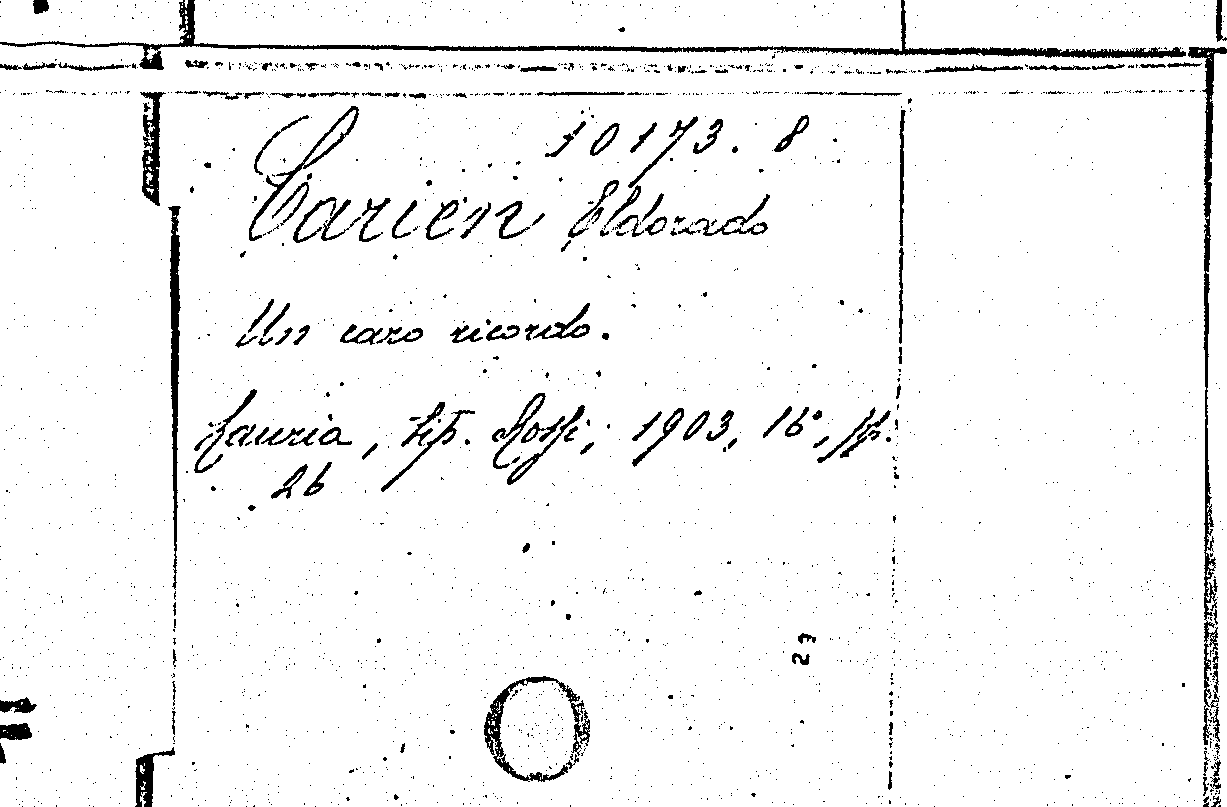 10173. 8
Carien Eldorado
Un caro ricordo.
Lauria, tip. Rossi, 1903, 16°, pp.
26
27